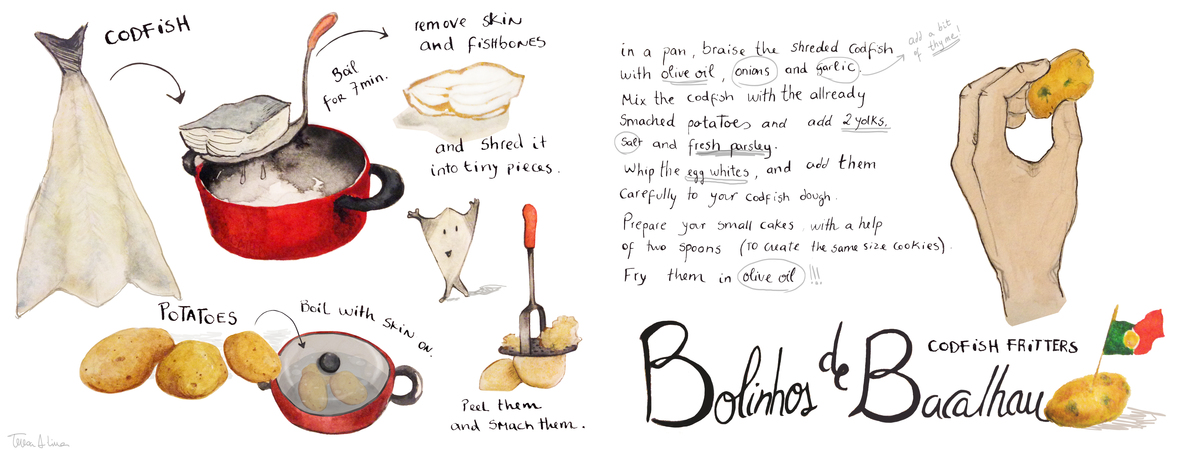 CODFISH
Boil
FOR 7min.
remove SKIN
and FISHBONES
and Shred it
into tiny pieces.
POTATOES
BOIL WITH SKIN ON.
Peel them
and SMACH THEM.
in a pan, braise the shreded Codfish
with olive oil, onions and garlic.
add a bit
of thyme!
Mix the codfish with the allready
Smached potatoes and add 2 yolks,
Salt and fresh parsley.
Whip the egg whites, and add them
Carefully to your codfish dough.
Prepare your small cakes with a help
of two spoons (TO Create the same size cookies).
Fry them in olive oil !!!
Bolinhos de Bacalhau
CODFISH FRITTERS